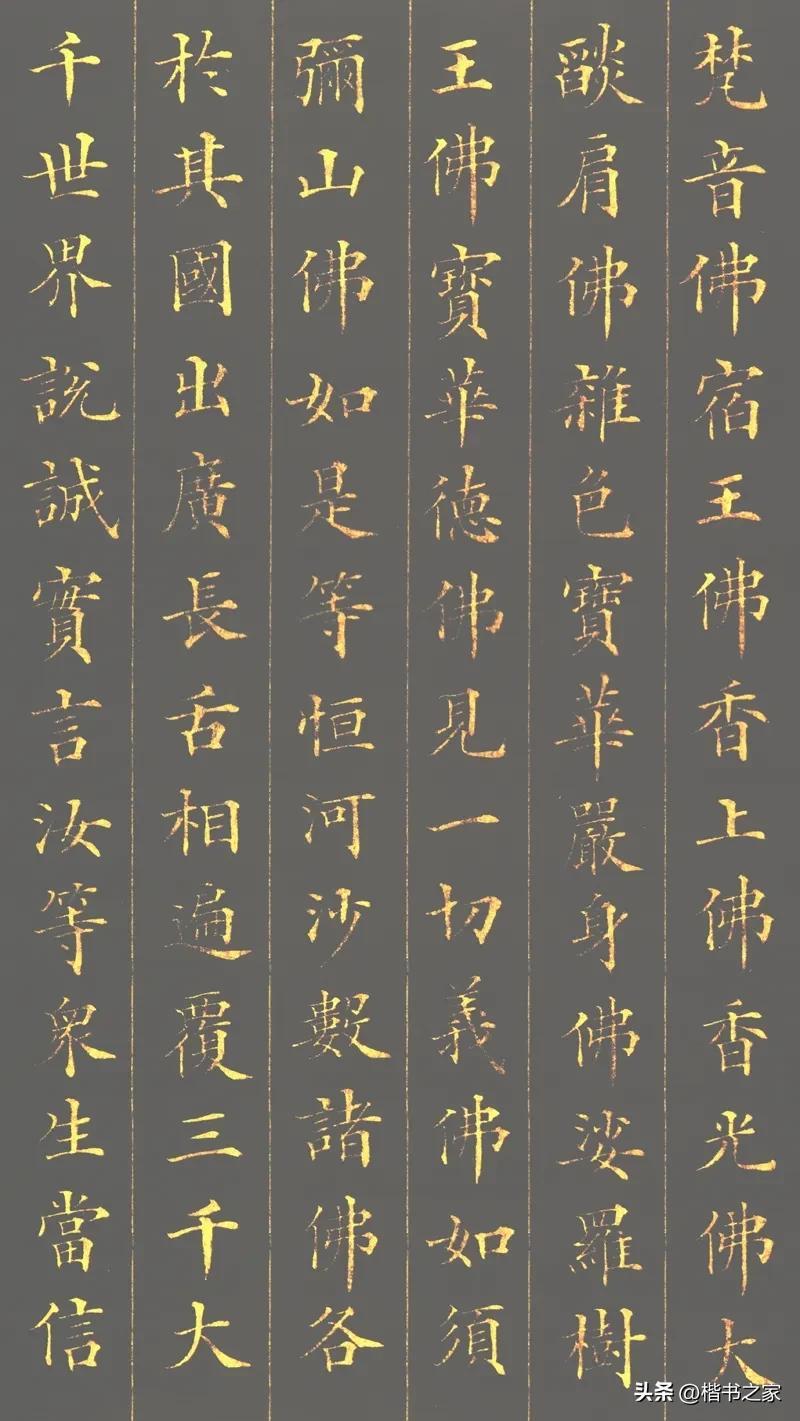 梵音佛宿王佛香上佛香光佛大
燄肩佛雜色寶華嚴身佛娑羅樹
王佛寶華德佛見一切義佛如須
彌山佛如是等恒河沙數諸佛各
於其國出廣長舌相遍覆三千大
千世界說誠實言汝等衆生當信
头条 @楷书之家